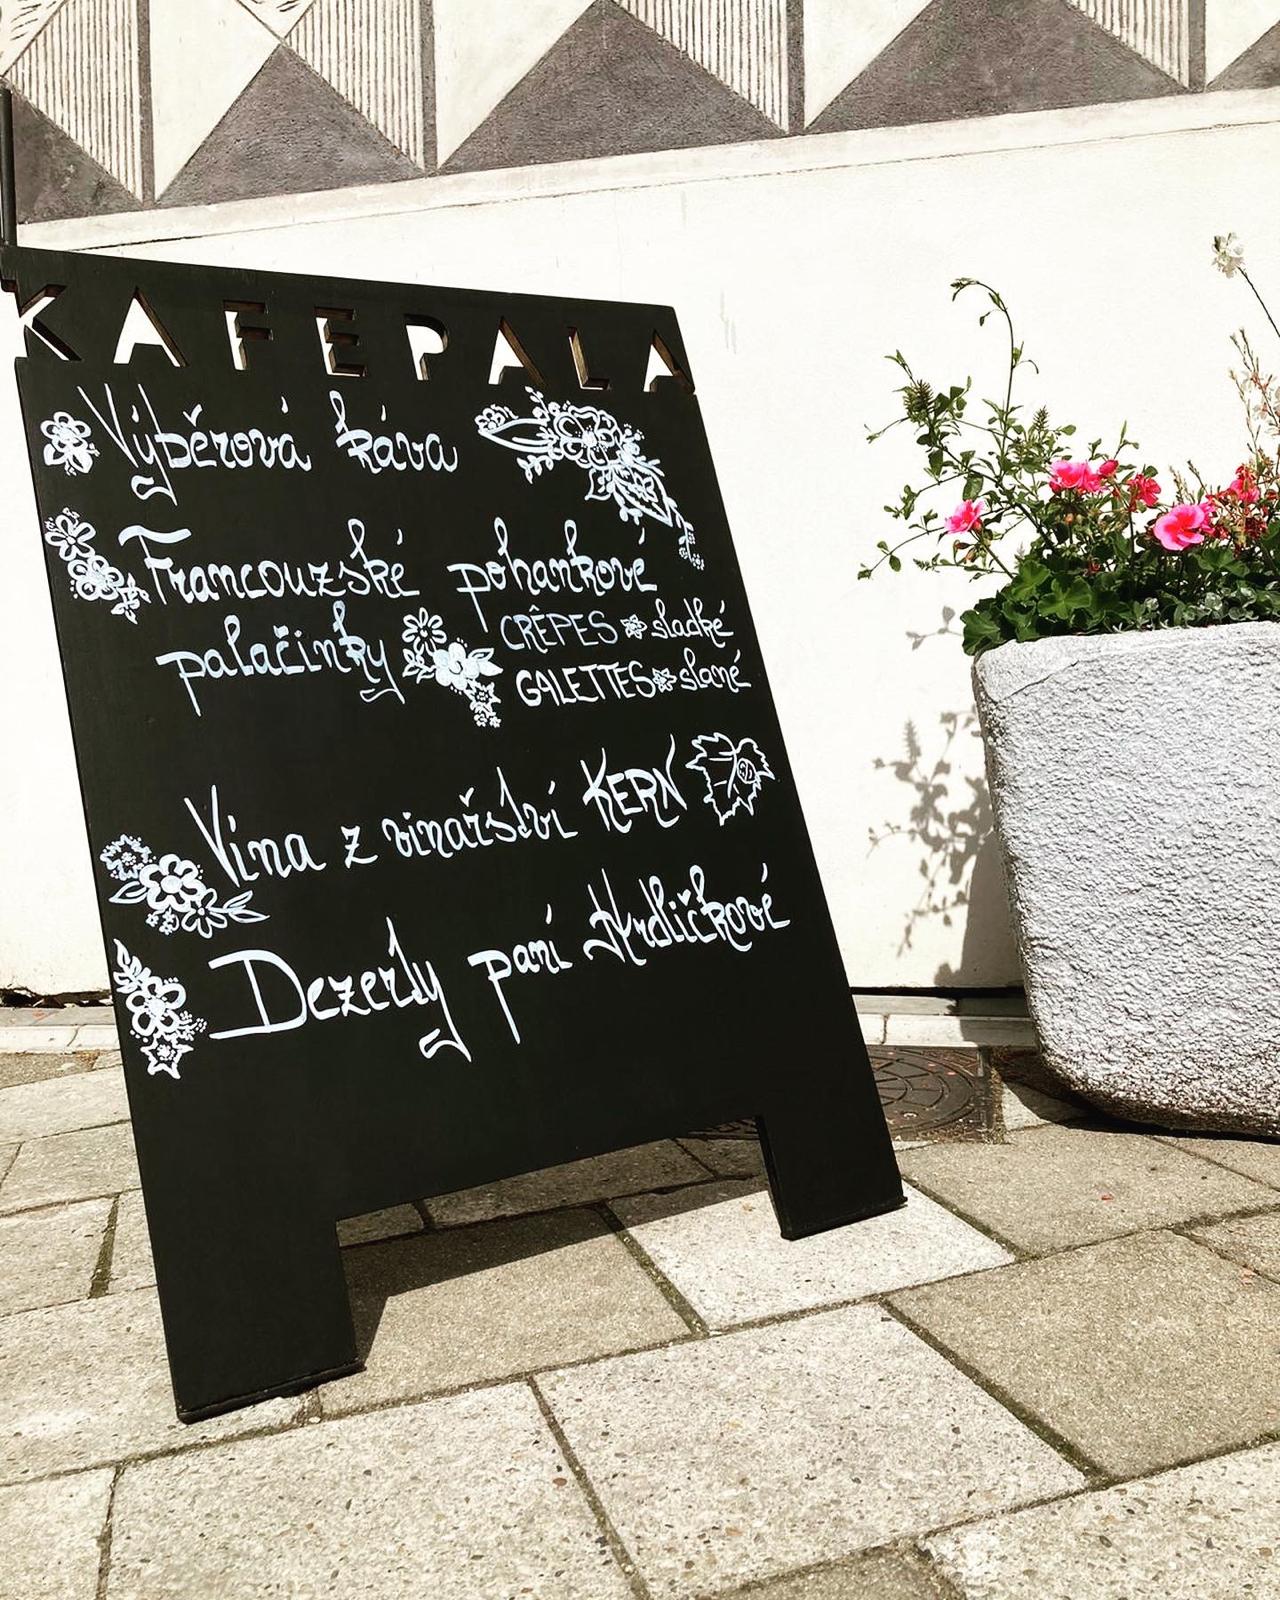 KAFEPALA
Výběrová káva
Francouzské pohankové
palačinky
CRÊPES sladké
GALETTES slané
Vína z vinařství KERN
Dezerty paní Hrdličkové